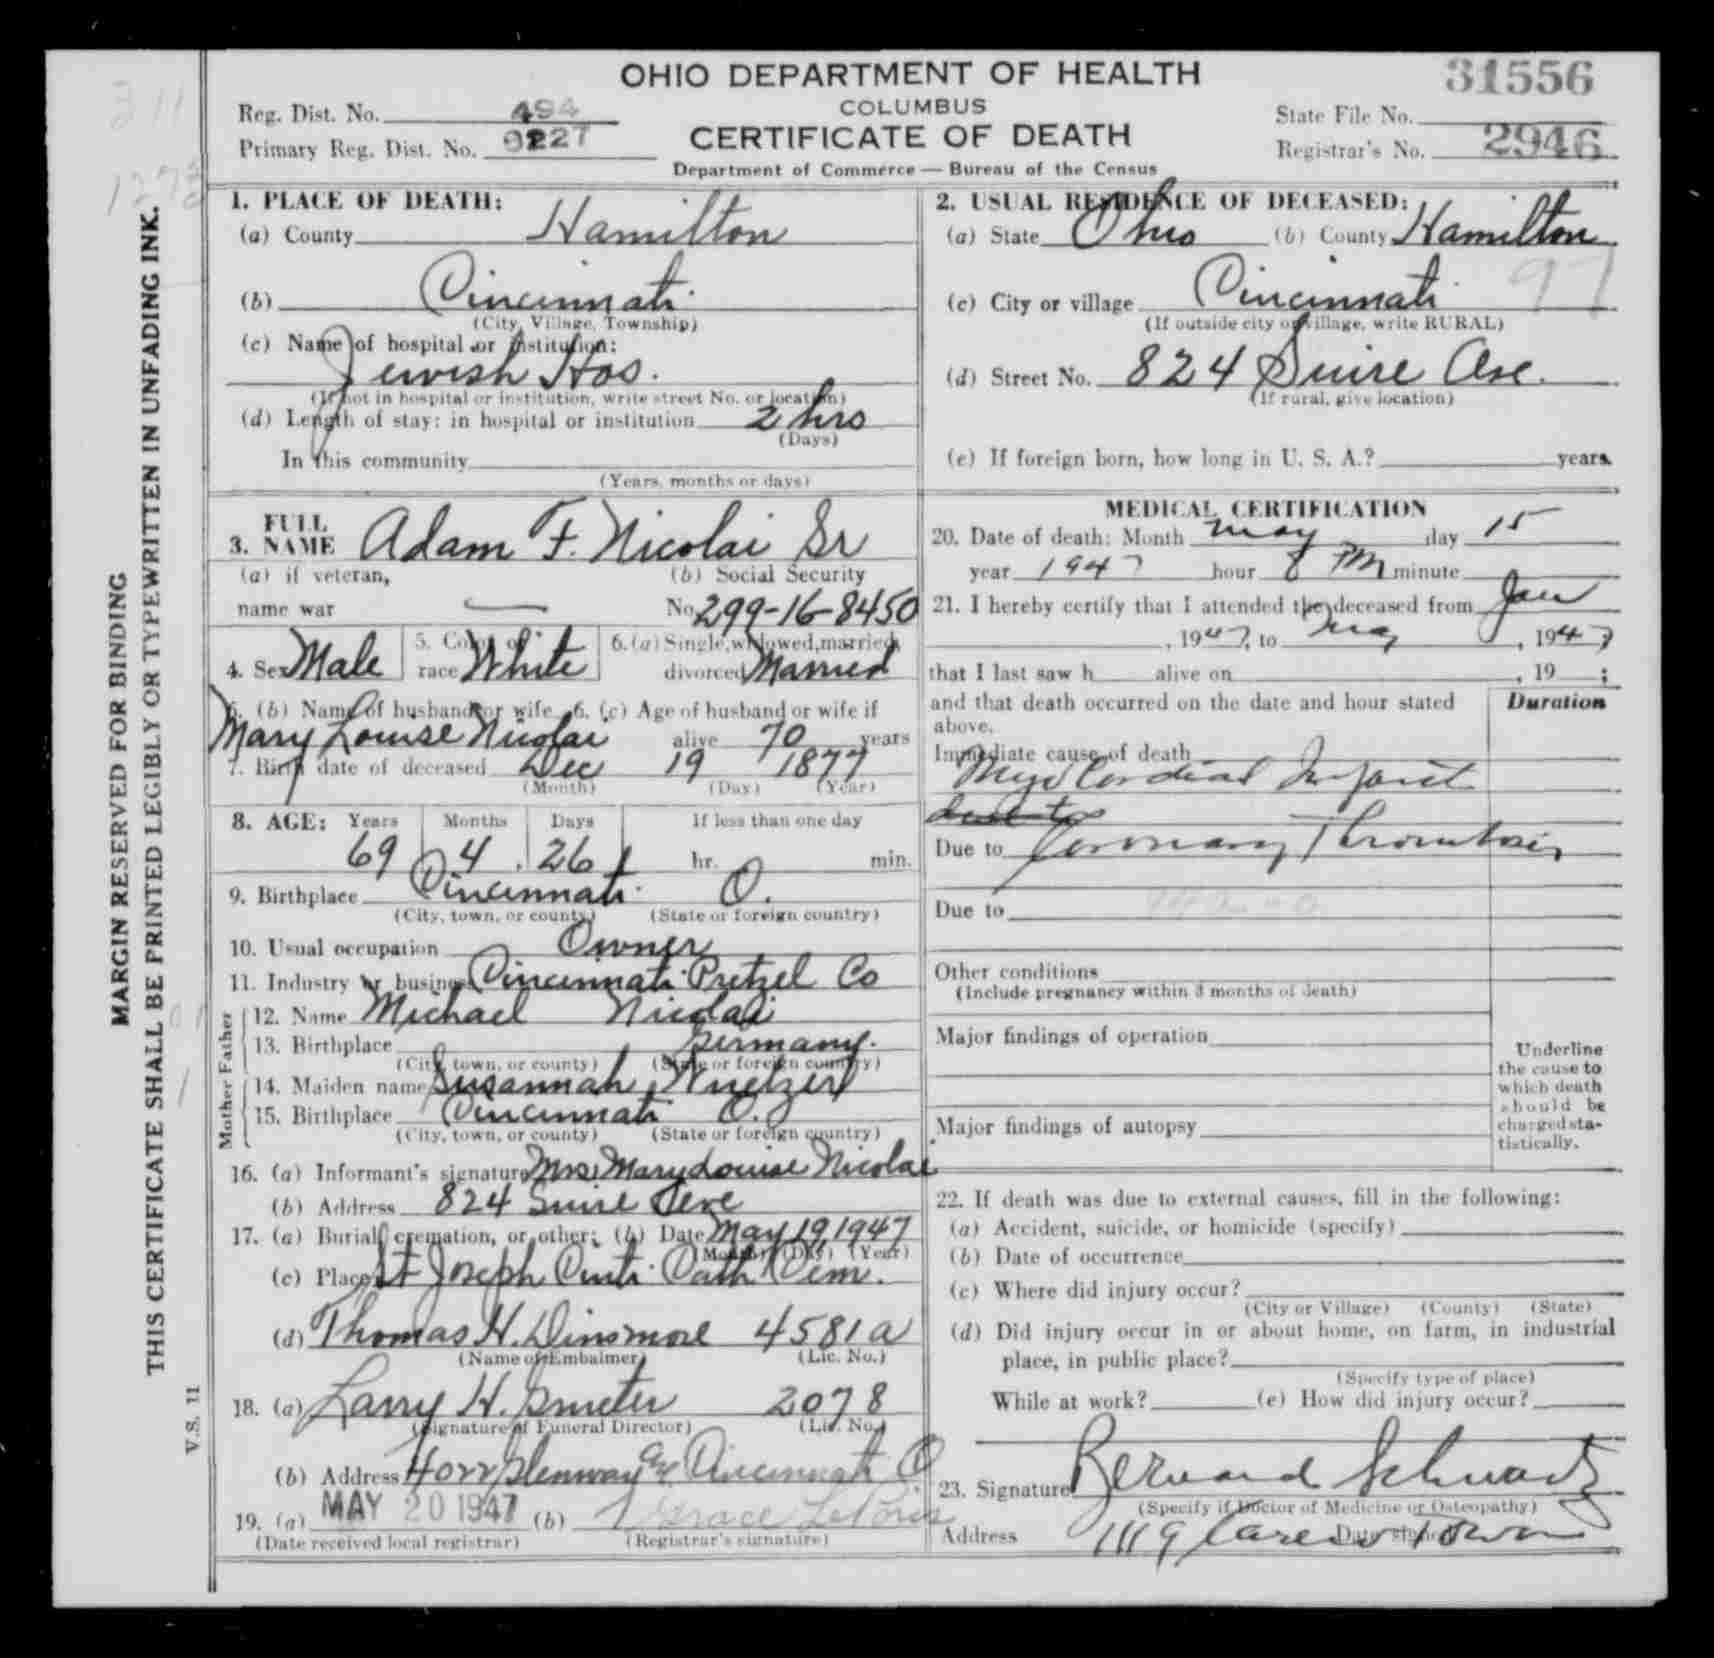 OHIO DEPARTMENT OF HEALTH
COLUMBUS
CERTIFICATE OF DEATH
Department of Commerce — Bureau of the Census
Reg. Dist. No. 494
Primary Reg. Dist. No. 9227
31556
State File No.
Registrar's No. 2946
311
MARGIN RESERVED FOR BINDING
THIS CERTIFICATE SHALL BE PRINTED LEGIBLY OR TYPEWRITTEN IN UNFADING INK.
V.S. 11
1. PLACE OF DEATH:
(a) County Hamilton
(b) Cincinnati
(City, Village, Township)
(c) Name of hospital or institution:
Jewish Hos.
(If not in hospital or institution, write street No. or location)
(d) Length of stay: in hospital or institution 2 hrs
(Days)
In this community
(Years, months or days)
2. USUAL RESIDENCE OF DECEASED:
(a) State Ohio (b) County Hamilton
97
(c) City or village Cincinnati
(If outside city or village, write RURAL)
(d) Street No. 824 Suire Ave.
(If rural, give location)
(e) If foreign born, how long in U. S. A.? years.
3. FULL NAME Adam F. Nicolai Sr
(a) if veteran, name war —
(b) Social Security No. 299-16-8450
4. Sex Male
5. Color or race White
6. (a) Single, widowed, married, divorced Married
6. (b) Name of husband or wife Mary Louise Nicolai
6. (c) Age of husband or wife if alive 70 years
7. Birth date of deceased Dec 19 1877
(Month) (Day) (Year)
8. AGE: Years 69 Months 4 Days 26 If less than one day hr. min.
9. Birthplace Cincinnati O.
(City, town, or county) (State or foreign country)
10. Usual occupation Owner
11. Industry or business Cincinnati Pretzel Co
Father
12. Name Michael Nicolai
13. Birthplace Germany.
(City, town, or county) (State or foreign country)
Mother
14. Maiden name Susannah
15. Birthplace Cincinnati O.
(City, town, or county) (State or foreign country)
16. (a) Informant's signature Mrs. Mary Louise Nicolai
(b) Address 824 Suire Ave
17. (a) Burial, cremation, or other: (b) Date May 19, 1947
(Month) (Day) (Year)
(c) Place St Joseph Cinti Cath Cem.
(d) Thomas H. Dinsmore 4581a
(Name of Embalmer) (Lic. No.)
18. (a) Larry H. 2078
(Signature of Funeral Director) (Lic. No.)
(b) Address Glenway Av Cincinnati O
19. (a) MAY 20 1947 (b) Grace
(Date received local registrar) (Registrar's signature)
MEDICAL CERTIFICATION
20. Date of death: Month May day 15
year 1947 hour 8 PM minute
21. I hereby certify that I attended the deceased from Jan
, 1947, to May , 1947
that I last saw h alive on , 19 ;
and that death occurred on the date and hour stated above.
Duration
Immediate cause of death
Myocardial Infarct
due to
Due to Coronary Thrombosis
Due to
Other conditions
(Include pregnancy within 3 months of death)
Major findings of operation
Major findings of autopsy
Underline the cause to which death should be charged statistically.
22. If death was due to external causes, fill in the following:
(a) Accident, suicide, or homicide (specify)
(b) Date of occurrence
(c) Where did injury occur?
(City or Village) (County) (State)
(d) Did injury occur in or about home, on farm, in industrial
place, in public place?
(Specify type of place)
While at work? (e) How did injury occur?
23. Signature Bernard Schwartz
(Specify if Doctor of Medicine or Osteopathy)
Address Carew Tower